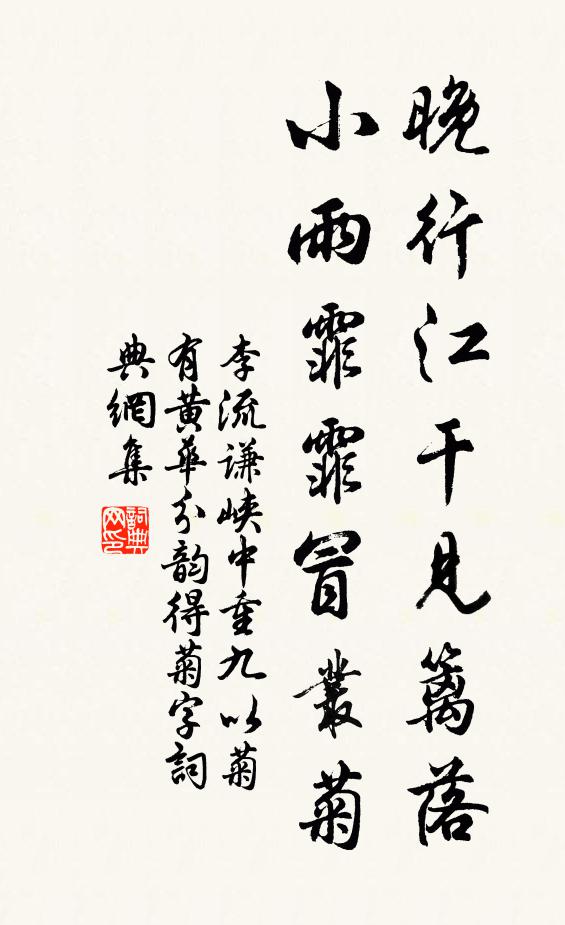 晚行江干見籬落
小雨霏霏冒叢菊
李流謙峽中重九以菊
有黃華分韵得菊字詞
典網集
詞典
网印